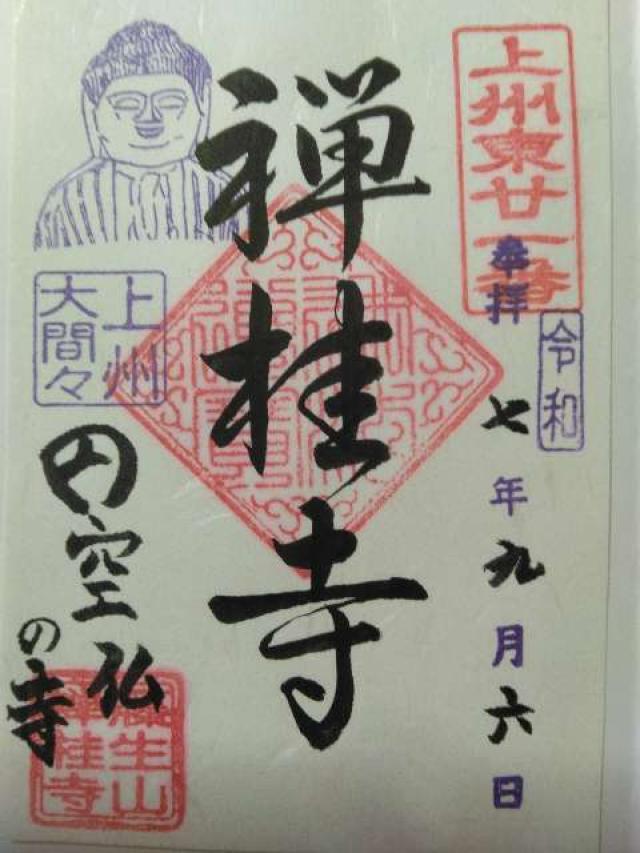 上州東廿一番
奉拝
令和
七年九月六日
禅桂寺
上州
大間々
円空仏
の寺
禅桂寺